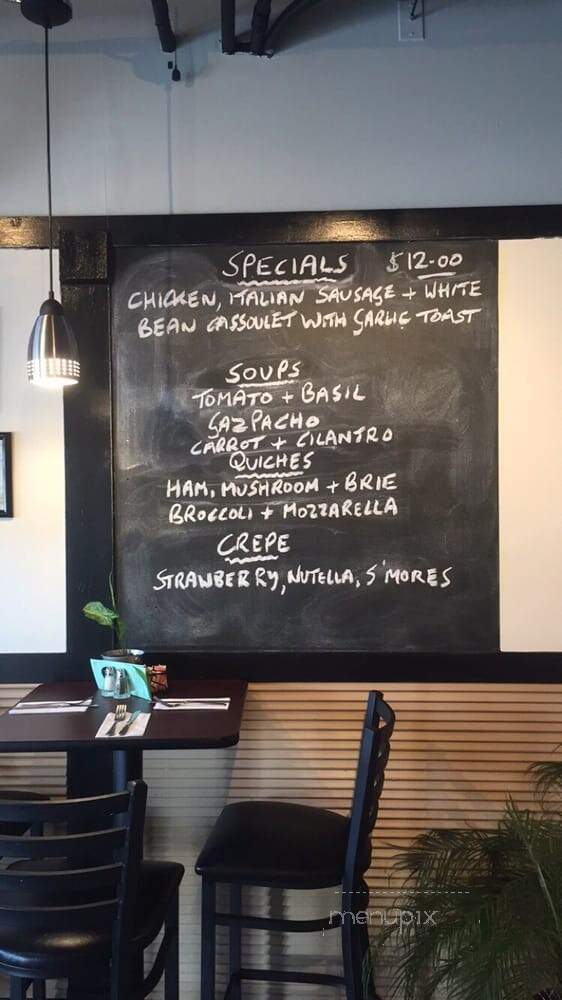 SPECIALS $12.00
CHICKEN, ITALIAN SAUSAGE + WHITE
BEAN CASSOULET WITH GARLIC TOAST
SOUPS
TOMATO + BASIL
GAZPACHO
CARROT + CILANTRO
QUICHES
HAM, MUSHROOM + BRIE
BROCCOLI + MOZZARELLA
CREPE
STRAWBERRY, NUTELLA, S'MORES
menupix